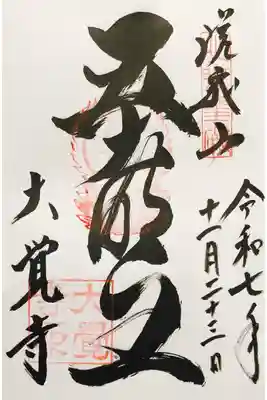 嵯峨山
令和七年
十一月二十三日
五大明王
大覚寺